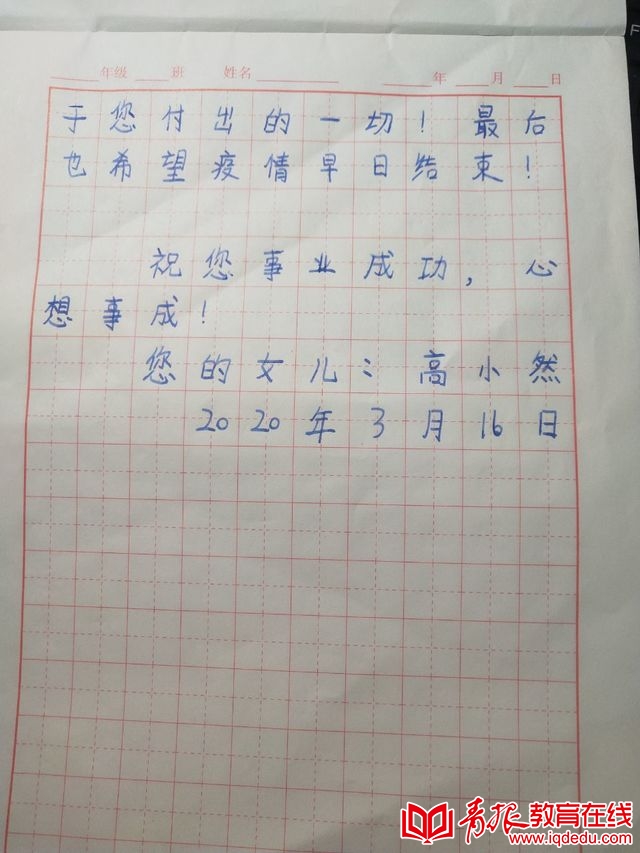 ____年级____班 姓名________ ____年____月____日
于您付出的一切！最后
也希望疫情早日结束！
祝您事业成功，心
想事成！
您的女儿：高小然
2020年3月16日
青报教育在线
www.iqdedu.com